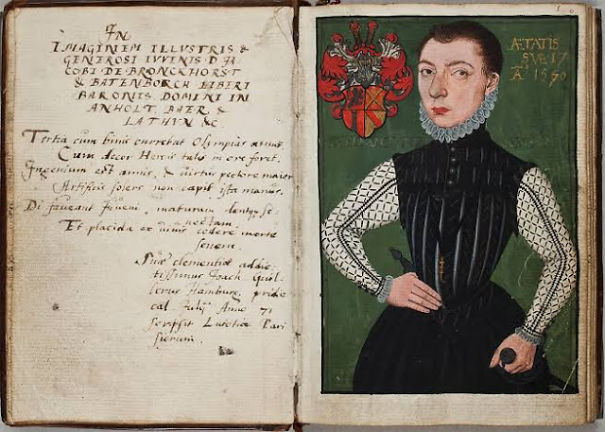 IN
IMAGINEM ILLVSTRIS &
GENEROSI IVVENIS D IA
COBI DE BRONCKHORST
& BATENBORCH LIBERI
BARONIS DOMINI IN
ANHOLT, BAER, &
LATHUM &c
Tertia cum binis currebat Olympias annis,
Cum decor Herois talis in ore foret.
Ingenium est annis, & virtus pectore maior
Artificis solers non capit ista manus.
Di faveant Iuveni, maturam dentque se-
nectam
Et placida ex vivis cedere morte
senem.
Suae clementiae addic
tissimus Joach.
Hamburg. pridie
cal. Julij Anno 71
scripsit Lutetiae Pari
siorum.
ÆTATIS
SVÆ 17
Aº 1570